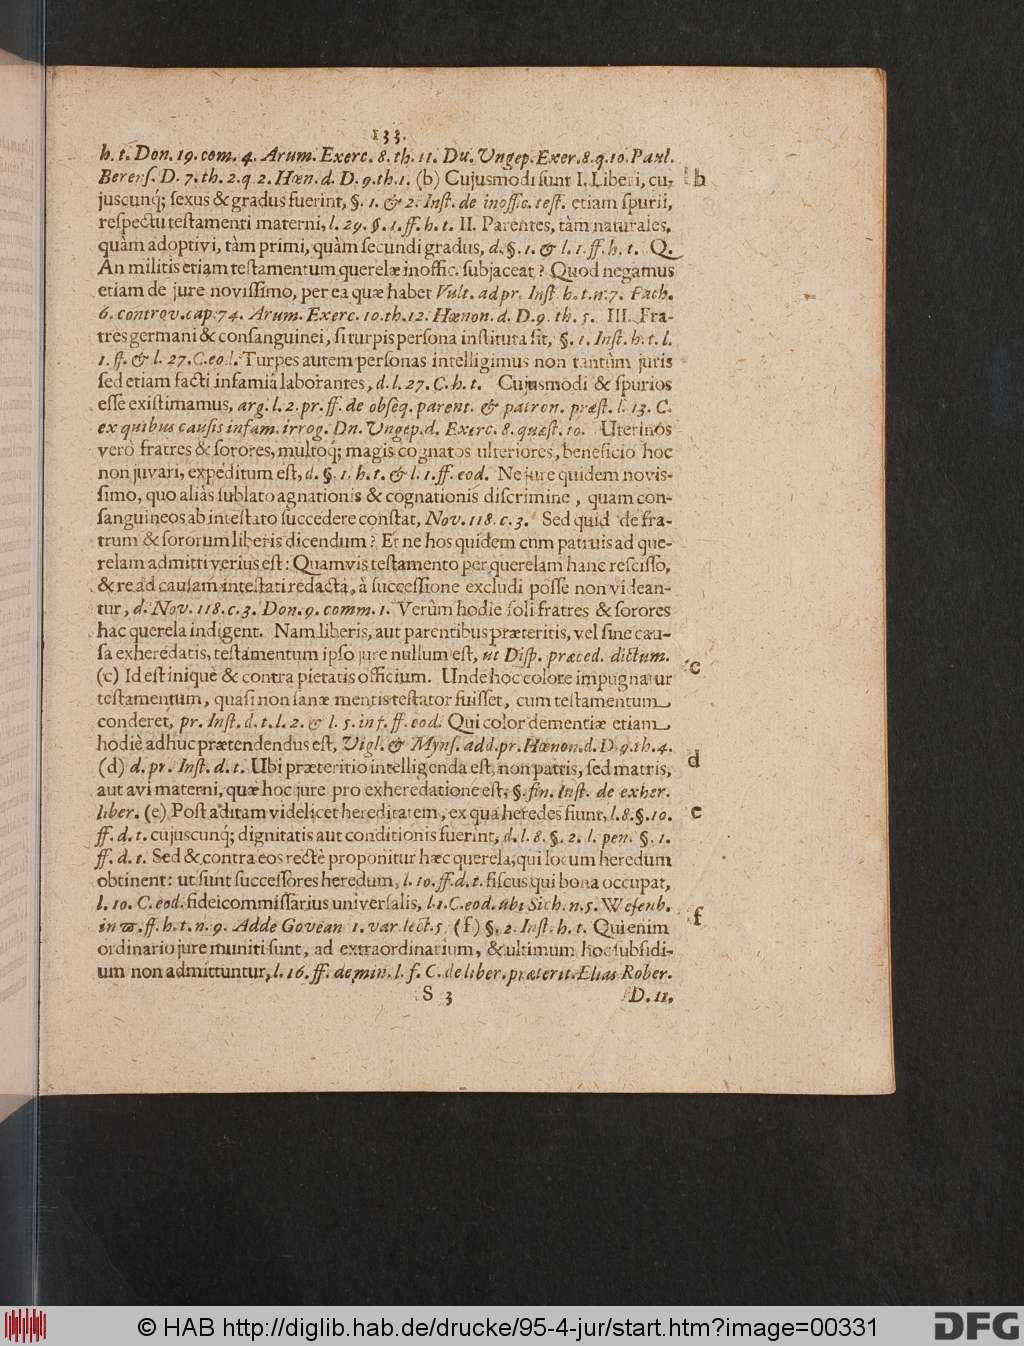 133.
h. t. Don. 19. com. 4. Arum. Exerc. 8. th. 11. Dn. Ungep. Exer. 8. q. 10. Paul.
D. 7. th. 2. q. 2. Hœn. d. D. 9. th. 1. (b) Cujusmodi sunt I. Liberi, cu- b
juscunq́; sexus & gradus fuerint, §. 1. & 2. Inst. de inoffic. test. etiam spurii,
respectu testamenti materni, l. 29. §. 1. ff. h. t. II. Parentes, tàm naturales,
quàm adoptivi, tàm primi, quàm secundi gradus, d. §. 1. & l. 1. ff. h. t. Q.
An militis etiam testamentum querelæ inoffic. subjaceat? Quod negamus
etiam de jure novissimo, per ea quæ habet Vult. ad pr. Inst. h. t. n. 7. Fach.
6. controv. cap. 74. Arum. Exerc. 10. th. 12. Hœnon. d. D. 9. th. 5. III. Fra-
tres germani & consanguinei, si turpis persona instituta sit, §. 1. Inst. h. t. l.
1. ff. & l. 27. C. eod. Turpes autem personas intelligimus non tantùm juris
sed etiam facti infamiâ laborantes, d. l. 27. C. h. t. Cujusmodi & spurios
esse existimamus, arg. l. 2. pr. ff. de obseq. parent. & patron. præst. l. 13. C.
ex quibus causis infam. irrog. Dn. Ungep. d. Exerc. 8. quæst. 10. Uterinos
verò fratres & sorores, multoq́; magis cognatos ulteriores, beneficio hoc
non juvari, expeditum est, d. §. 1. h. t. & l. 1. ff. eod. Ne jure quidem novis-
simo, quo aliàs sublato agnationis & cognationis discrimine, quam con-
sanguineos ab intestato succedere constat, Nov. 118. c. 3. Sed quid de fra-
trum & sororum liberis dicendum? Et ne hos quidem cum patruis ad que-
relam admitti verius est: Quamvis testamento per querelam hanc rescisso,
& re ad causam intestati redactâ, à successione excludi posse non videan-
tur, d. Nov. 118. c. 3. Don. 9. comm. 1. Verùm hodie soli fratres & sorores
hac querela indigent. Nam liberis, aut parentibus præteritis, vel sine cau-
sa exheredatis, testamentum ipso jure nullum est, ut Disp. præced. dictum.
(c) Id est iniquè & contra pietatis officium. Unde hoc colore impugnatur c
testamentum, quasi non sanæ mentis testator fuisset, cum testamentum
conderet, pr. Inst. d. t. l. 2. & l. 5. in f. ff. eod. Qui color dementiæ etiam
hodiè adhuc prætendendus est, Vigl. & Myns. add. pr. Hœnon. d. D. 9. th. 4.
(d) d. pr. Inst. d. t. Ubi præteritio intelligenda est, non patris, sed matris, d
aut avi materni, quæ hoc jure pro exheredatione est, §. fin. Inst. de exher.
liber. (e) Post aditam videlicet hereditatem, ex quâ heredes fiunt, l. 8. §. 10. e
ff. d. t. cujuscunq́; dignitatis aut conditionis fuerint, d. l. 8. §. 2. l. pen. §. 1.
ff. d. t. Sed & contra eos rectè proponitur hæc querela, qui locum heredum
obtinent: ut sunt successores heredum, l. 10. ff. d. t. fiscus qui bona occupat,
l. 10. C. eod. fideicommissarius universalis, l. 1. C. eod. ubi Sich. n. 5. Wesenb.
in ϖ. ff. h. t. n. 9. Adde Govean 1. var. lect. 5. (f) §. 2. Inst. h. t. Qui enim f
ordinario jure muniti sunt, ad extraordinarium, & ultimum hoc subsidi-
um non admittuntur, l. 16. ff. de min. l. f. C. de liber. præterit. Elias Rober.
S 3 D. 11.
© HAB http://diglib.hab.de/drucke/95-4-jur/start.htm?image=00331
DFG